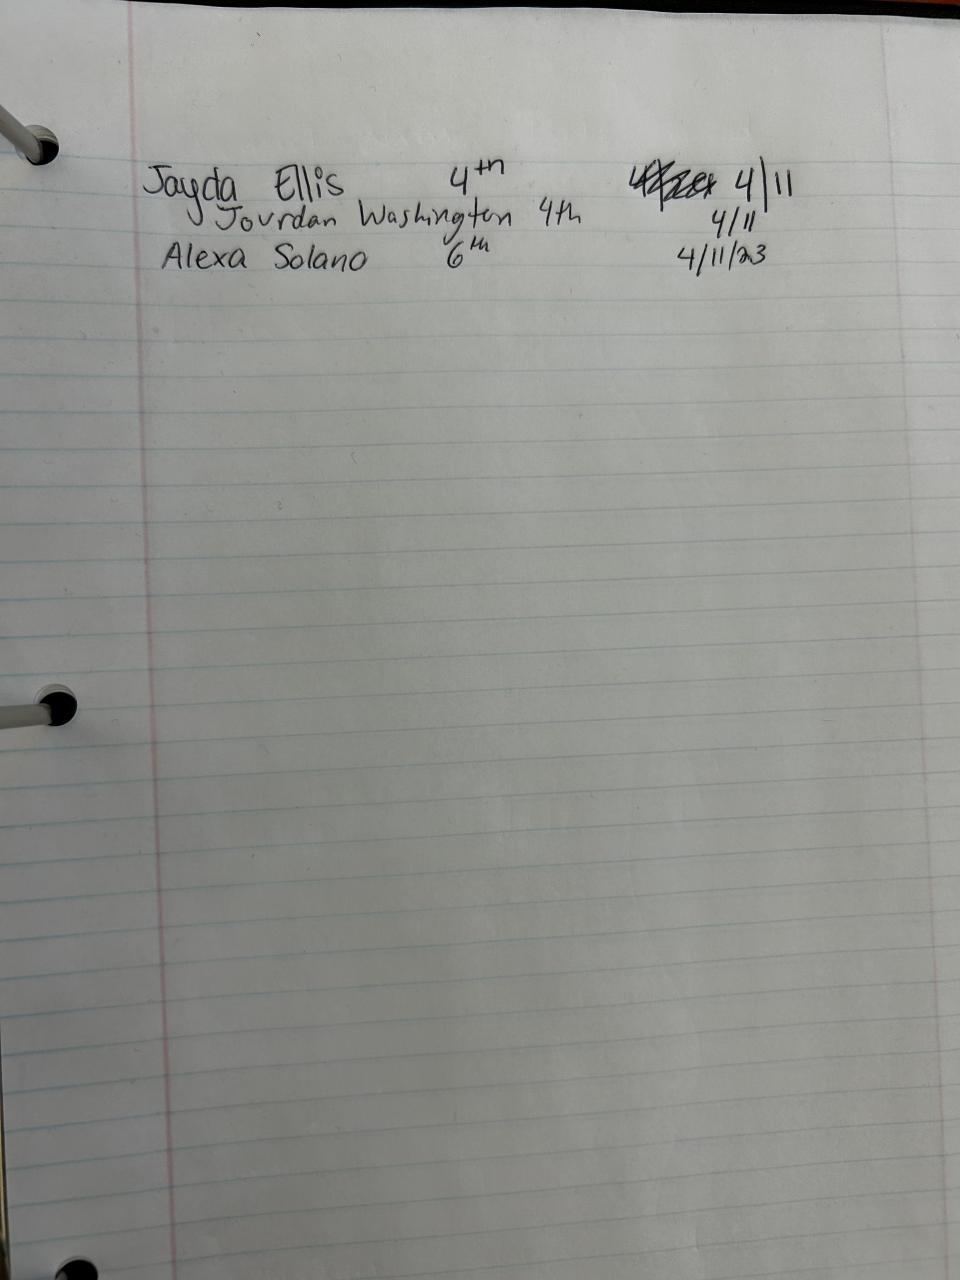 Jayda Ellis 4th 4/11
Jourdan Washington 4th 4/11
Alexa Solano 6th 4/11/23